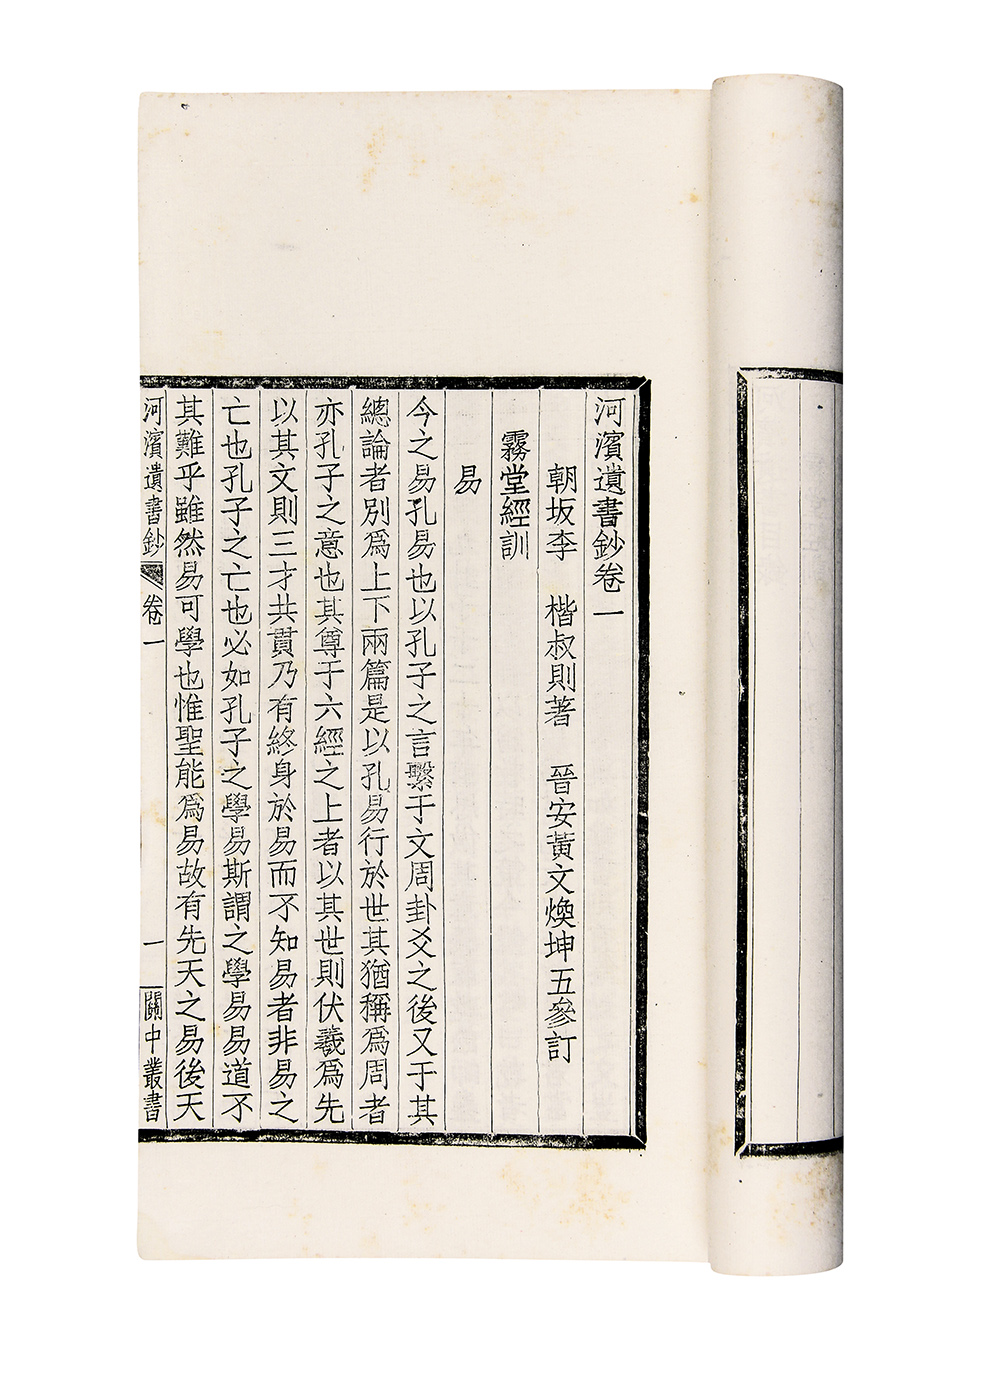 河濱遺書鈔卷一
朝坂李 楷叔則著 晉安黃文煥坤五參訂
霧堂經訓
易
今之易孔易也以孔子之言繫于文周卦爻之後又于其
總論者別爲上下兩篇是以孔易行於世其猶稱爲周者
亦孔子之意也其尊于六經之上者以其世則伏羲爲先
以其文則三才共貫乃有終身於易而不知易者非易之
亡也孔子之亡也必如孔子之學易斯謂之學易易道不
其難乎雖然易可學也惟聖能爲易故有先天之易後天
河濱遺書鈔 卷一 一 關中叢書